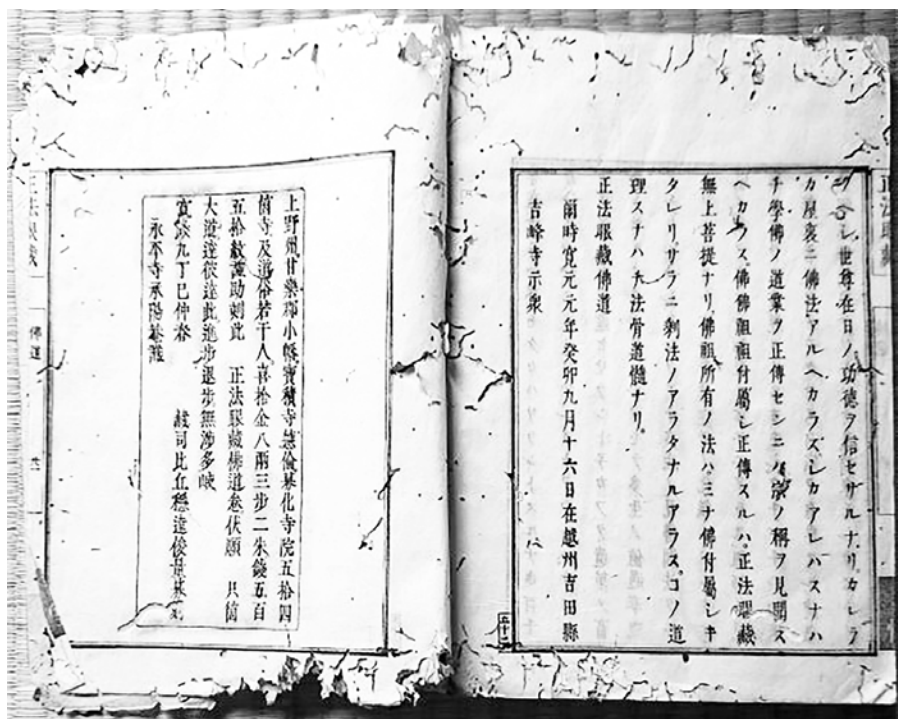 ツヘシ。世尊在日ノ功德ヲ信セサルナリ。カレラ
カ屋裏ニ佛法アルヘカラズ。シカアレハスナハ
チ學佛ノ道業ヲ正傳センニハ。宗ノ稱ヲ見聞ス
ヘカラス。佛佛祖祖付屬シ正傳スルハ。正法眼藏
無上菩提ナリ。佛祖所有ノ法ハ。ミナ佛付屬シキ
タレリ。サラニ剩法ノアラタナルアラス。コノ道
理スナハチ法骨道髓ナリ。
正法眼藏佛道
爾時寬元元年癸卯九月十六日在越州吉田縣
吉峰寺示衆
五十
上野州甘樂郡小幡寶積寺慧倫募化寺院五拾四
箇寺及道俗若干人喜拾金八兩三步二朱錢五百
五拾紋謹助刻此 正法眼藏佛道卷伏願 只箇
大道達彼達此進步退步無涉多岐
寬政九丁巳仲春 幹司比丘穩達俊量
永平寺承陽菴藏
正法眼藏
佛道